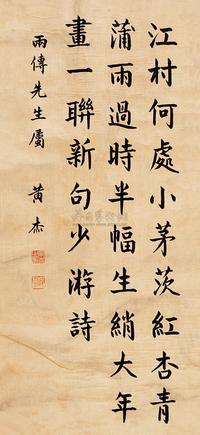 江村何處小茅茨紅杏青
蒲雨過時半幅生綃大年
畫一聯新句少游詩
雨傳先生屬　黃杰